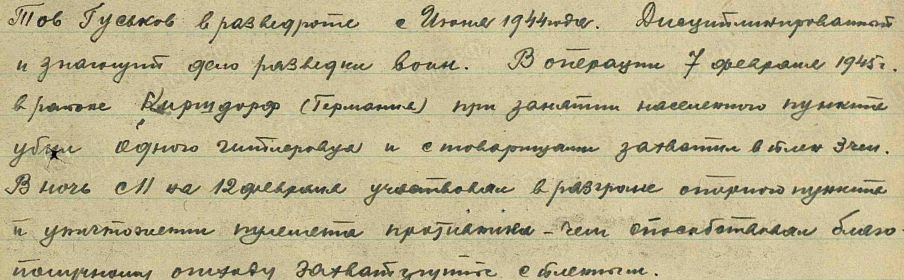 Тов Гуськов в разведроте с Июня 1944 года. Дисциплинированный
и знающий дело разведки воин. В операции 7 февраля 1945 г.
в районе Киршдорф (Германия) при занятии населенного пункта
убил одного гитлеровца и с товарищами захватил в плен 3 чел.
В ночь с 11 на 12 февраля участвовал в разгроме опорного пункта
и уничтожении пулемета противника - чем способствовал благо-
получному отходу захватгруппе с пленным.